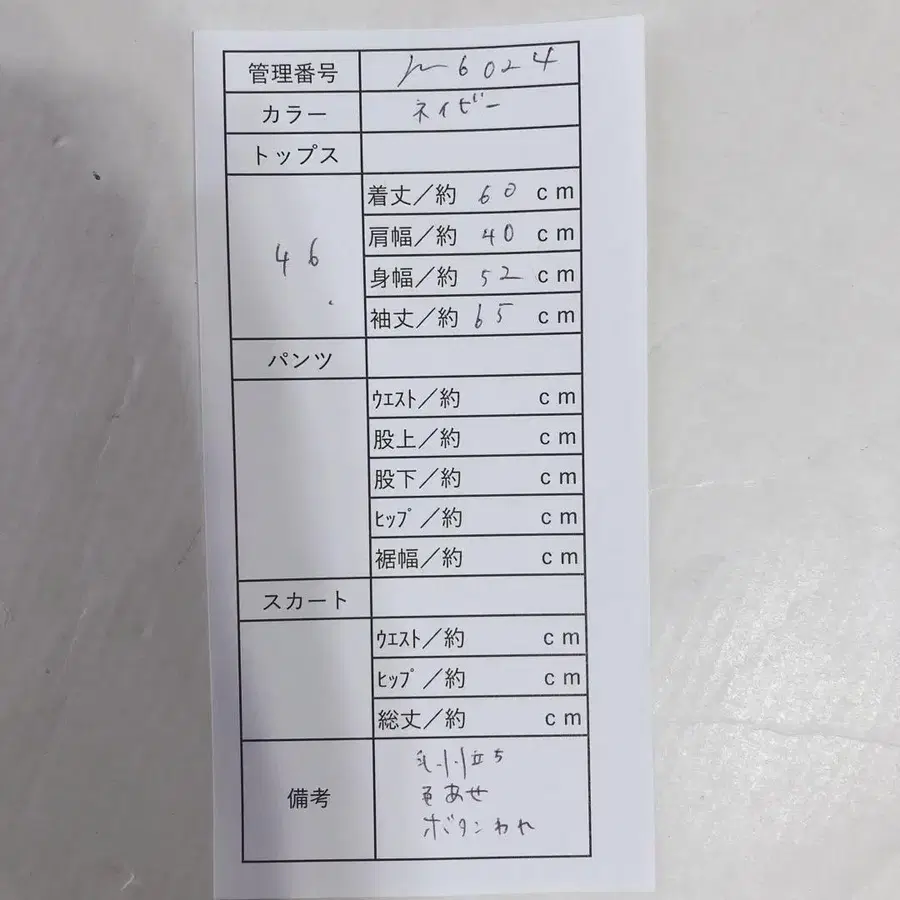 管理番号 6024
カラー ネイビー
トップス
46
着丈／約 60 cm
肩幅／約 40 cm
身幅／約 52 cm
袖丈／約 65 cm
パンツ
ｳｴｽﾄ／約 cm
股上／約 cm
股下／約 cm
ﾋｯﾌﾟ／約 cm
裾幅／約 cm
スカート
ｳｴｽﾄ／約 cm
ﾋｯﾌﾟ／約 cm
総丈／約 cm
備考
立ち
色あせ
ボタンわれ